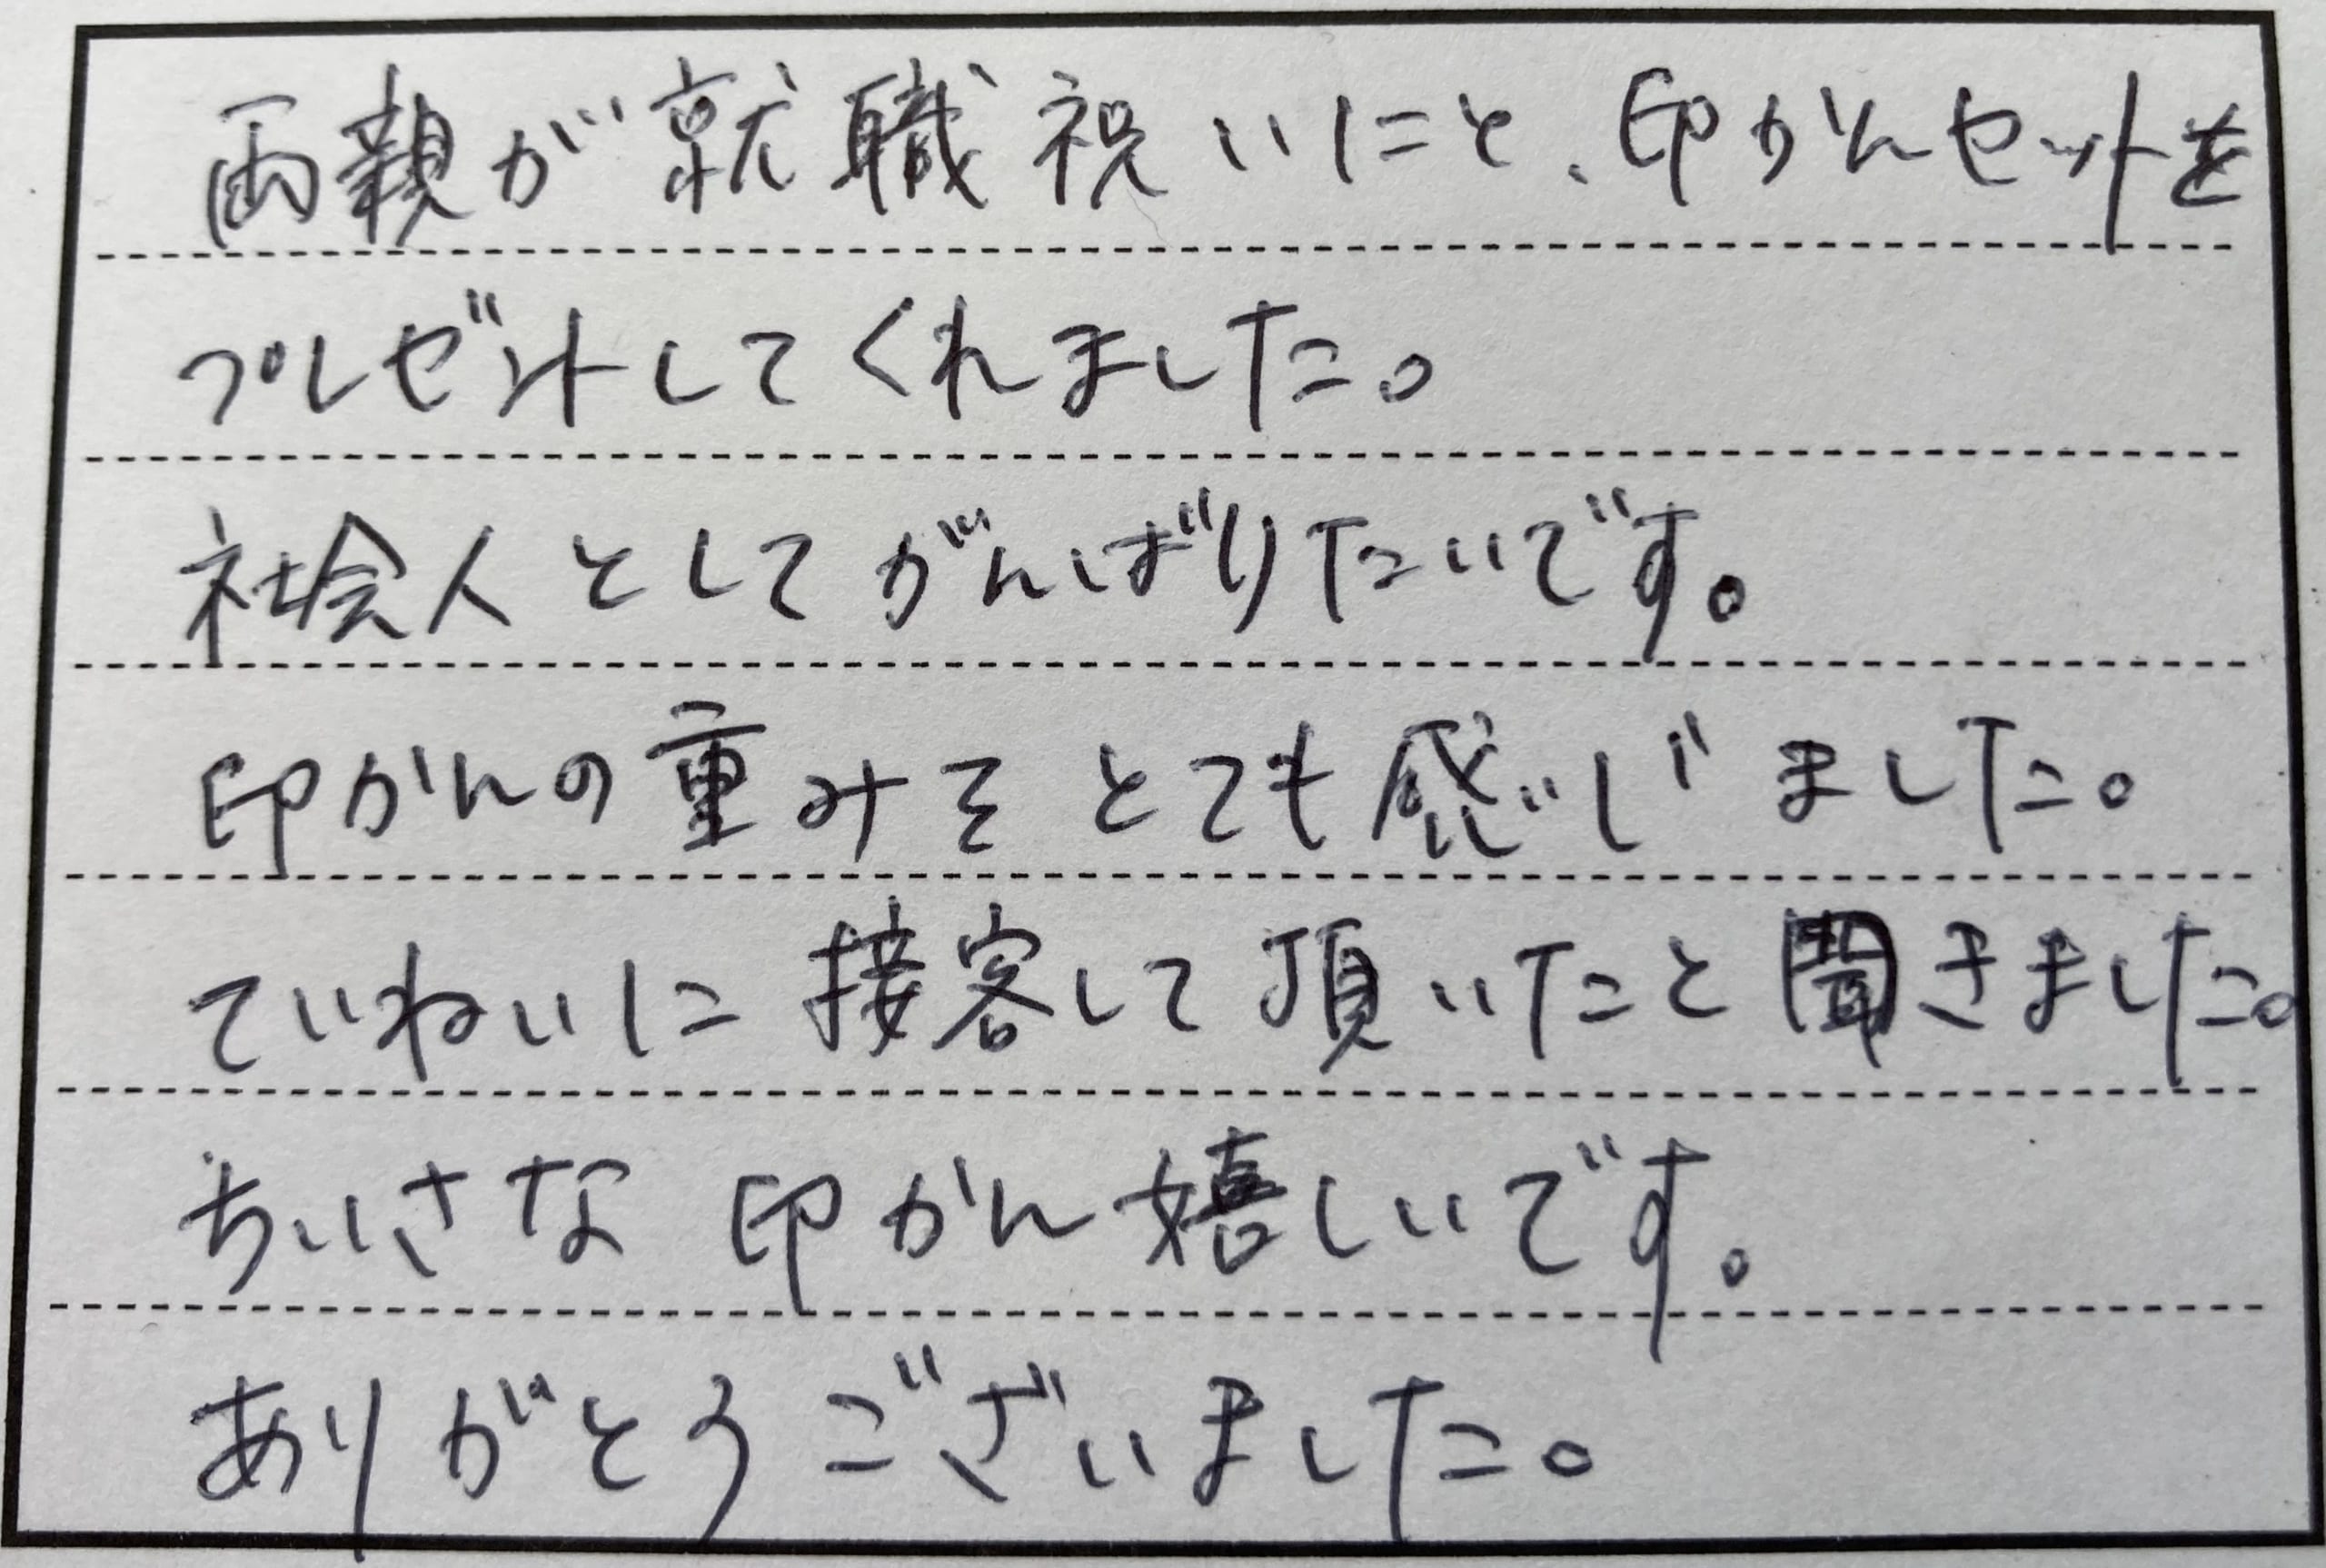 両親が就職祝いにと、印かんセットを
プレゼントしてくれました。
社会人としてがんばりたいです。
印かんの重みをとても感じました。
ていねいに接客して頂いたと聞きました。
ちいさな印かん嬉しいです。
ありがとうございました。